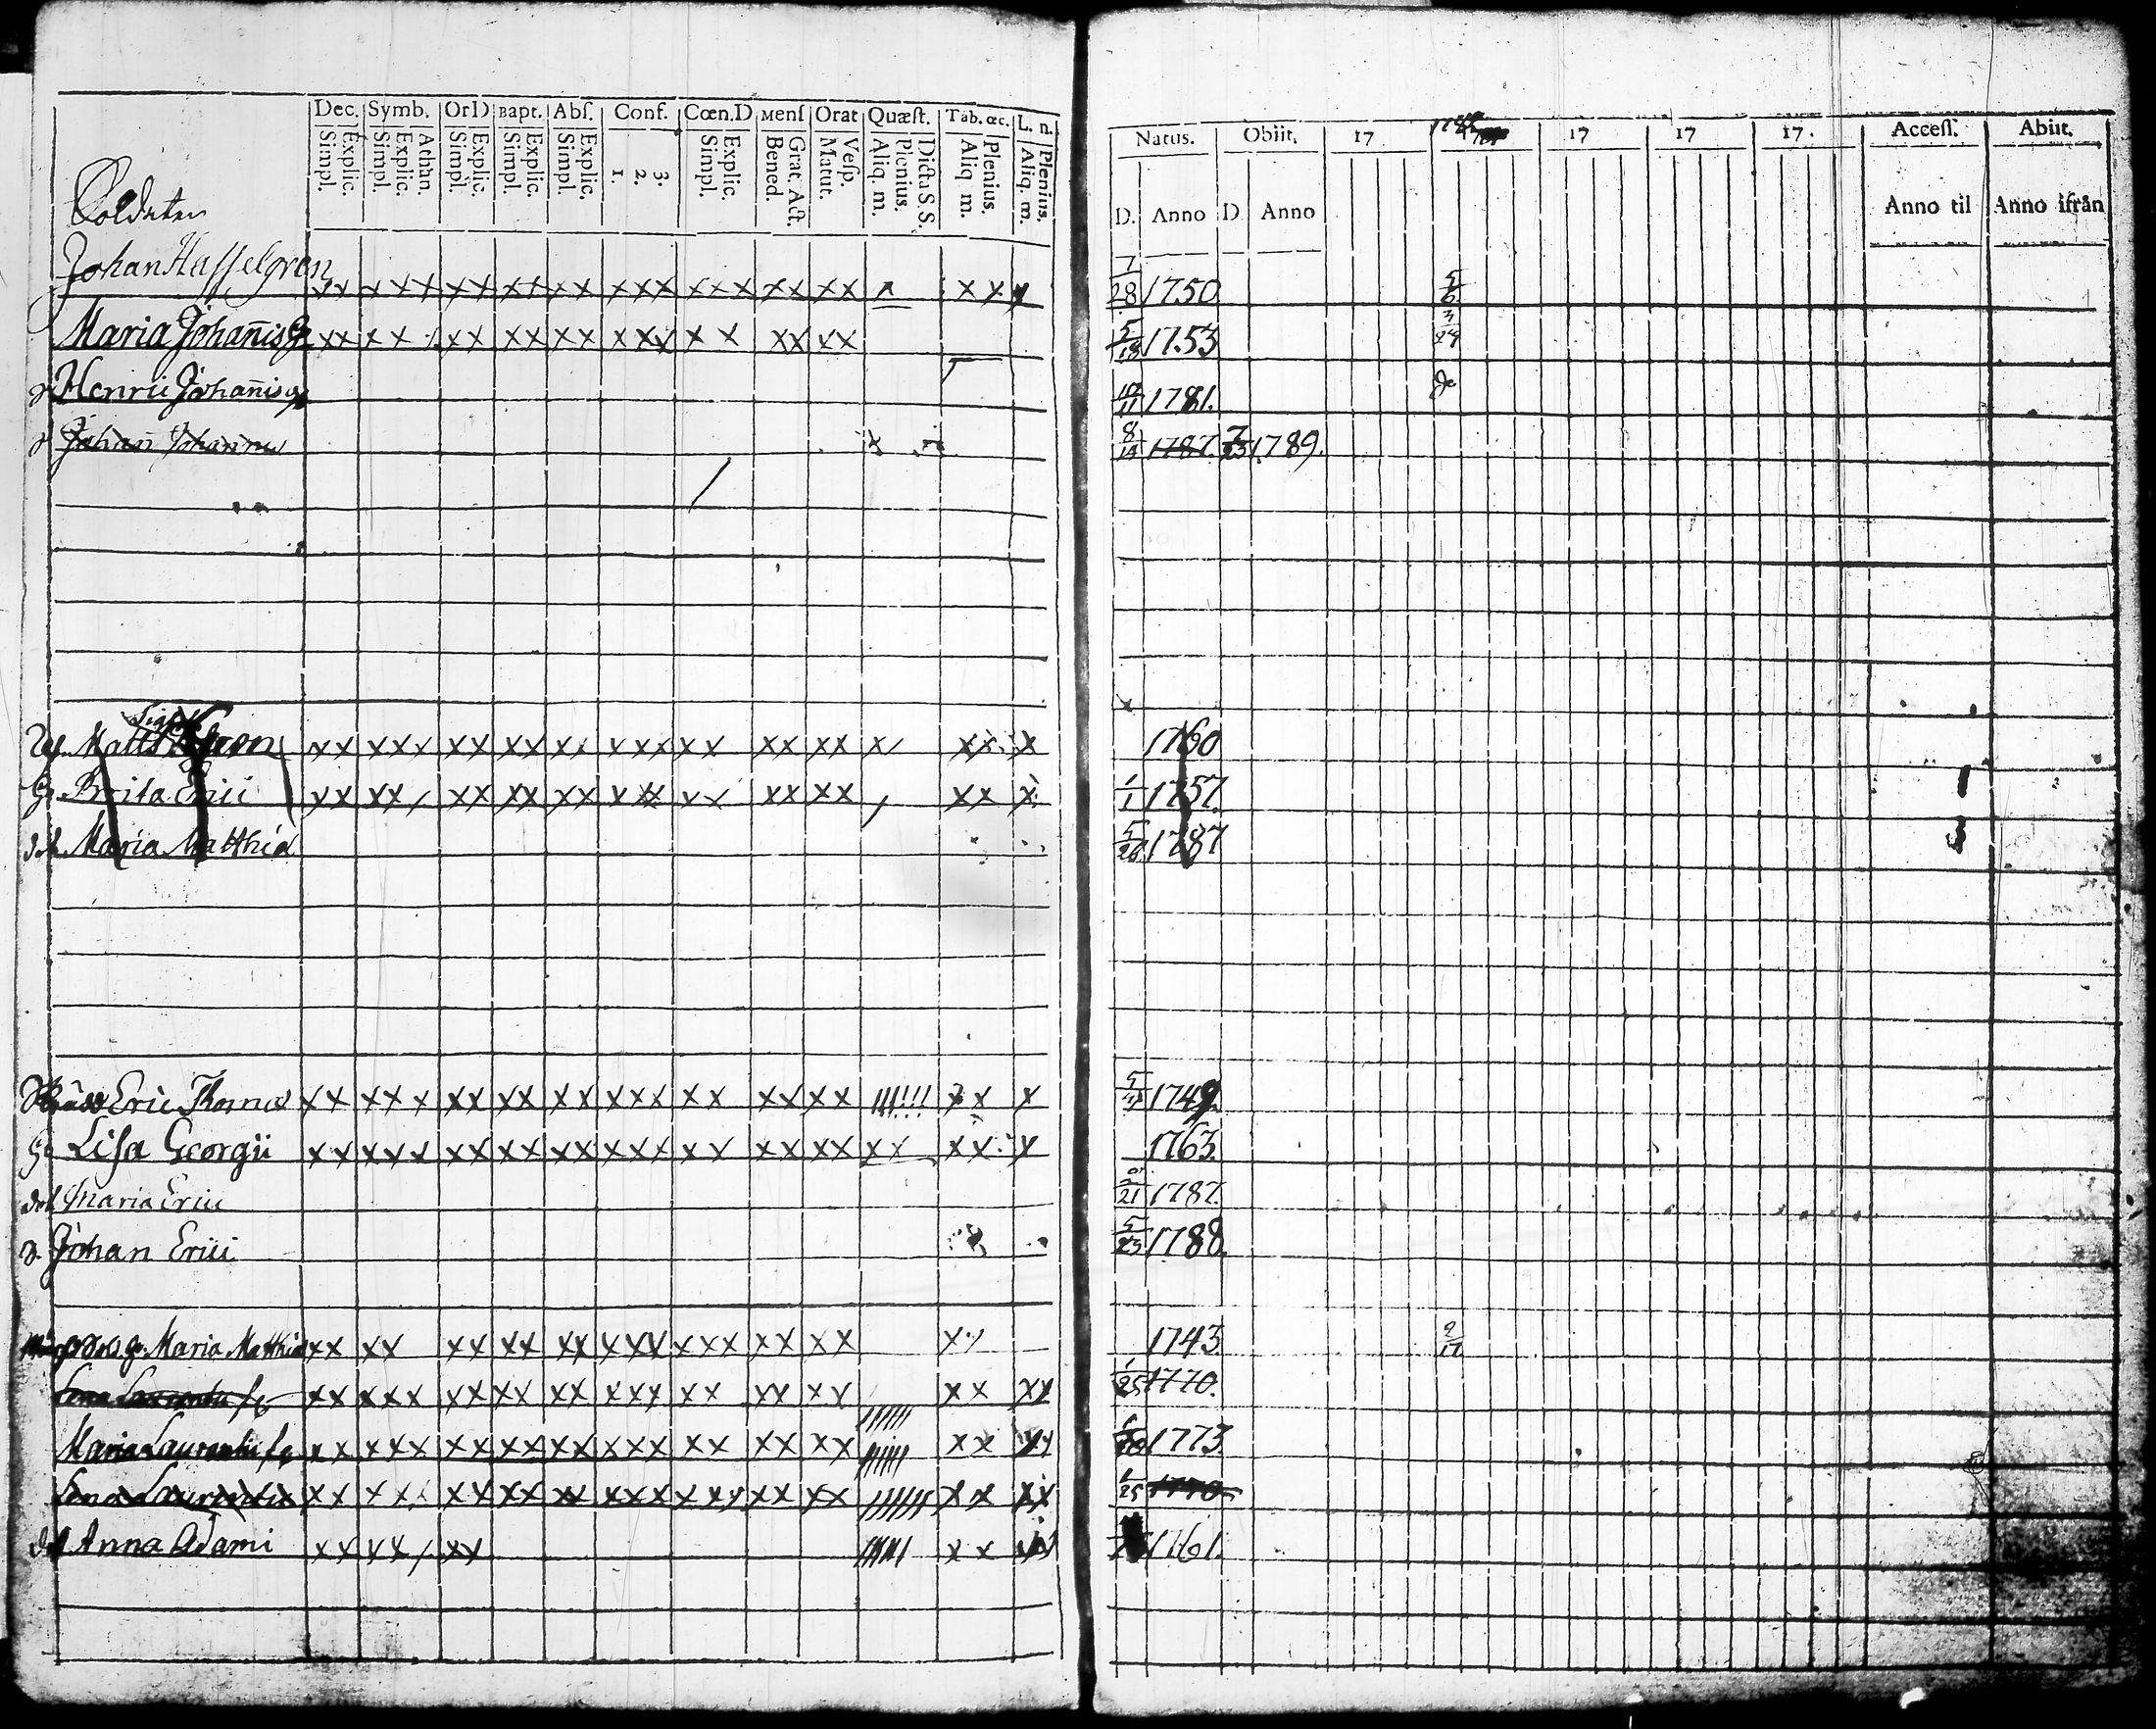 Dec. Symb. OrD Bapt. Abſ. Conf. Cœn.D Menſ Orat Quæſt. Tab. œc. L. n.
Simpl. Explic. Simpl. Explic. Athan. Simpl. Explic. Simpl. Explic. Simpl. Explic. 1. 2. 3. Simpl. Explic. Bened. Grat. Act. Matut. Veſp. Aliq. m. Plenius. Dicta S. S. Aliq m. Plenius. Aliq. m. Plenius.
Natus. Obiit. 17 17 17 17. Acceſſ. Abiit.
D. Anno D. Anno Anno til Anno ifrån
Soldaten
Johan Haſſelgren xx xxx xx xx xx xxx xxx xx xx x xx x 7/28 1750 5/6
Maria Johanis xx xx xx xx xx xxx xx xx xx 5/18 1753 3/29
Henric Johanis 1781. do
Johan Johannis 8/19 1787. 7/23 1789.
Matts xx xxx xx xx xx xxx xx xx xx x xx x 1760
Brita Erici xx xx xx xx xx xxx xx xx xx xx x 1/1 1757.
Maria Matthiæ 5/26 1787
Eric Thomæ xx xxx xx xx xx xxx xx xx xx xx x 1749.
G. Lisa Georgii xx xxx xx xx xx xxx xx xx xx xx xx x 1763.
dot Maria Erici 1787.
Johan Erici 5/23 1788.
Maria Matthiæ xx xx xx xx xx xxx xxx xx xx x 1743. 2/17
Lena Laurentii xx xxx xx xx xx xxx xx xx xx xx xx 1/25 1770.
Maria Laurentii xx xxx xx xx xx xxx xx xx xx xx xx 1773.
Lena Laurentii xx xxx xx xx xx xxx xxx xx xx xx xx 1/25 1770
Anna Adami xx xx xx xx 1761.